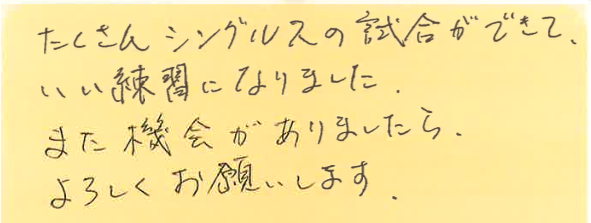 たくさんシングルスの試合ができて、
いい練習になりました.
また機会がありましたら.
よろしくお願いします.